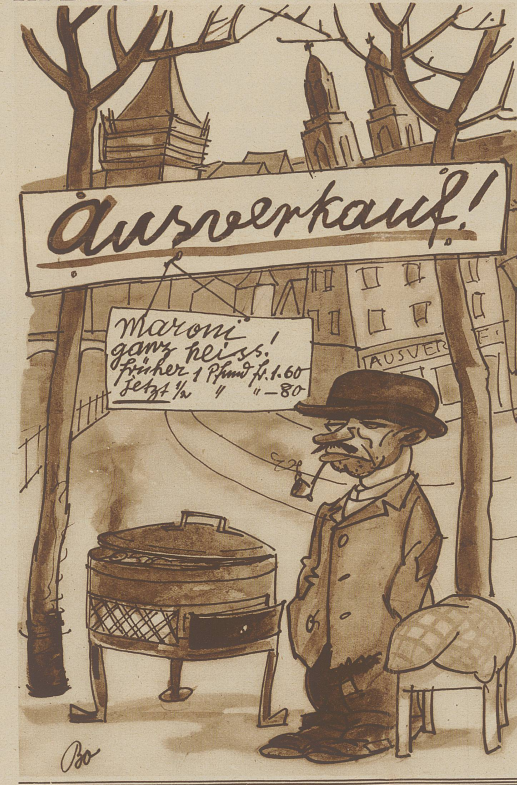 Ausverkauf!
Maroni
ganz heiss!
früher 1 Pfund fr. 1.60
Jetzt ½ " " –80
AUSVER E
Bo